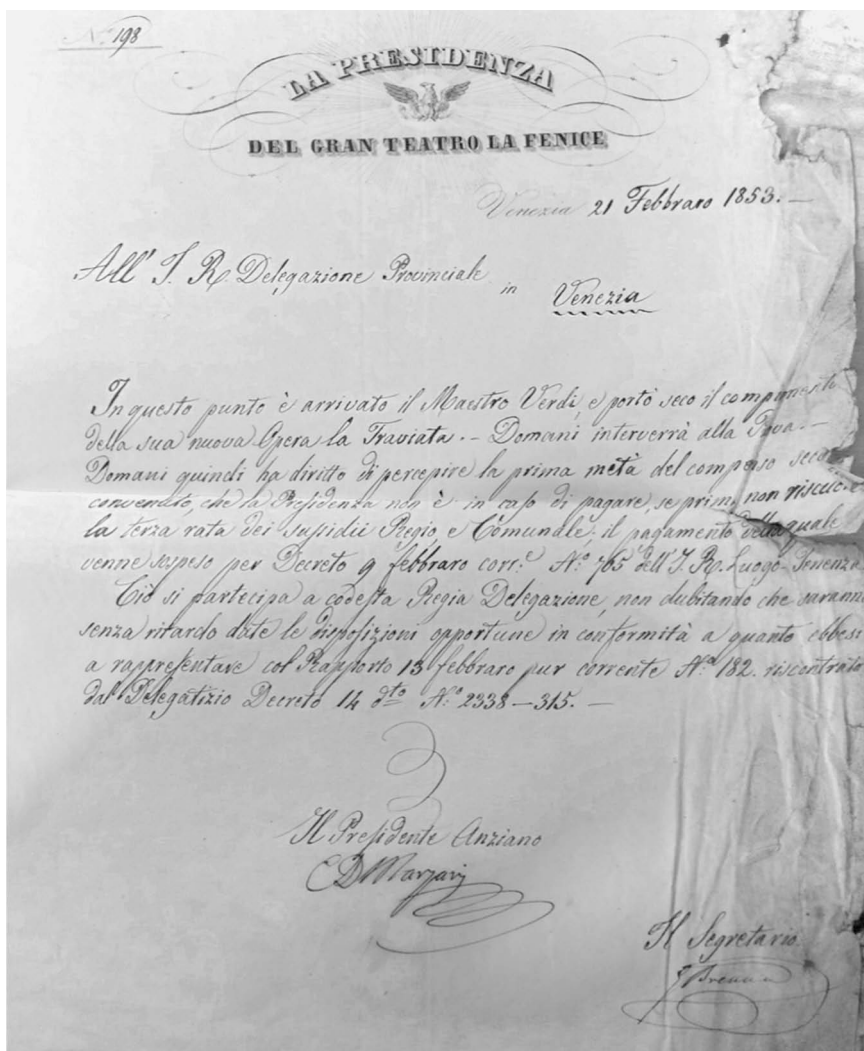 N.° 198
LA PRESIDENZA
DEL GRAN TEATRO LA FENICE
Venezia 21 Febbraro 1853. —
All' I. R. Delegazione Provinciale
in Venezia
In questo punto è arrivato il Maestro Verdi, e portò seco il componimento
della sua nuova Opera la Traviata. — Domani interverrà alla Prova. —
Domani quindi ha diritto di percepire la prima metà del compenso seco
convenuto, che la Presidenza non è in caso di pagare, se prima non riscuote
la terza rata dei sussidii Regio, e Comunale; il pagamento della quale
venne sospeso per Decreto 9 febbraro corr.e N.° 765 dell'I. R. Luogo-Tenenza.
Ciò si partecipa a codesta Regia Delegazione, non dubitando che saranno
senza ritardo date le disposizioni opportune in conformità a quanto ebbesi
a rappresentare col Rapporto 13 febbraro pur corrente N.° 182. riscontrato
dal Delegatizio Decreto 14 d.to N.° 2338 — 315. —
Il Presidente Anziano
C D Marzari
Il Segretario
G Brenna